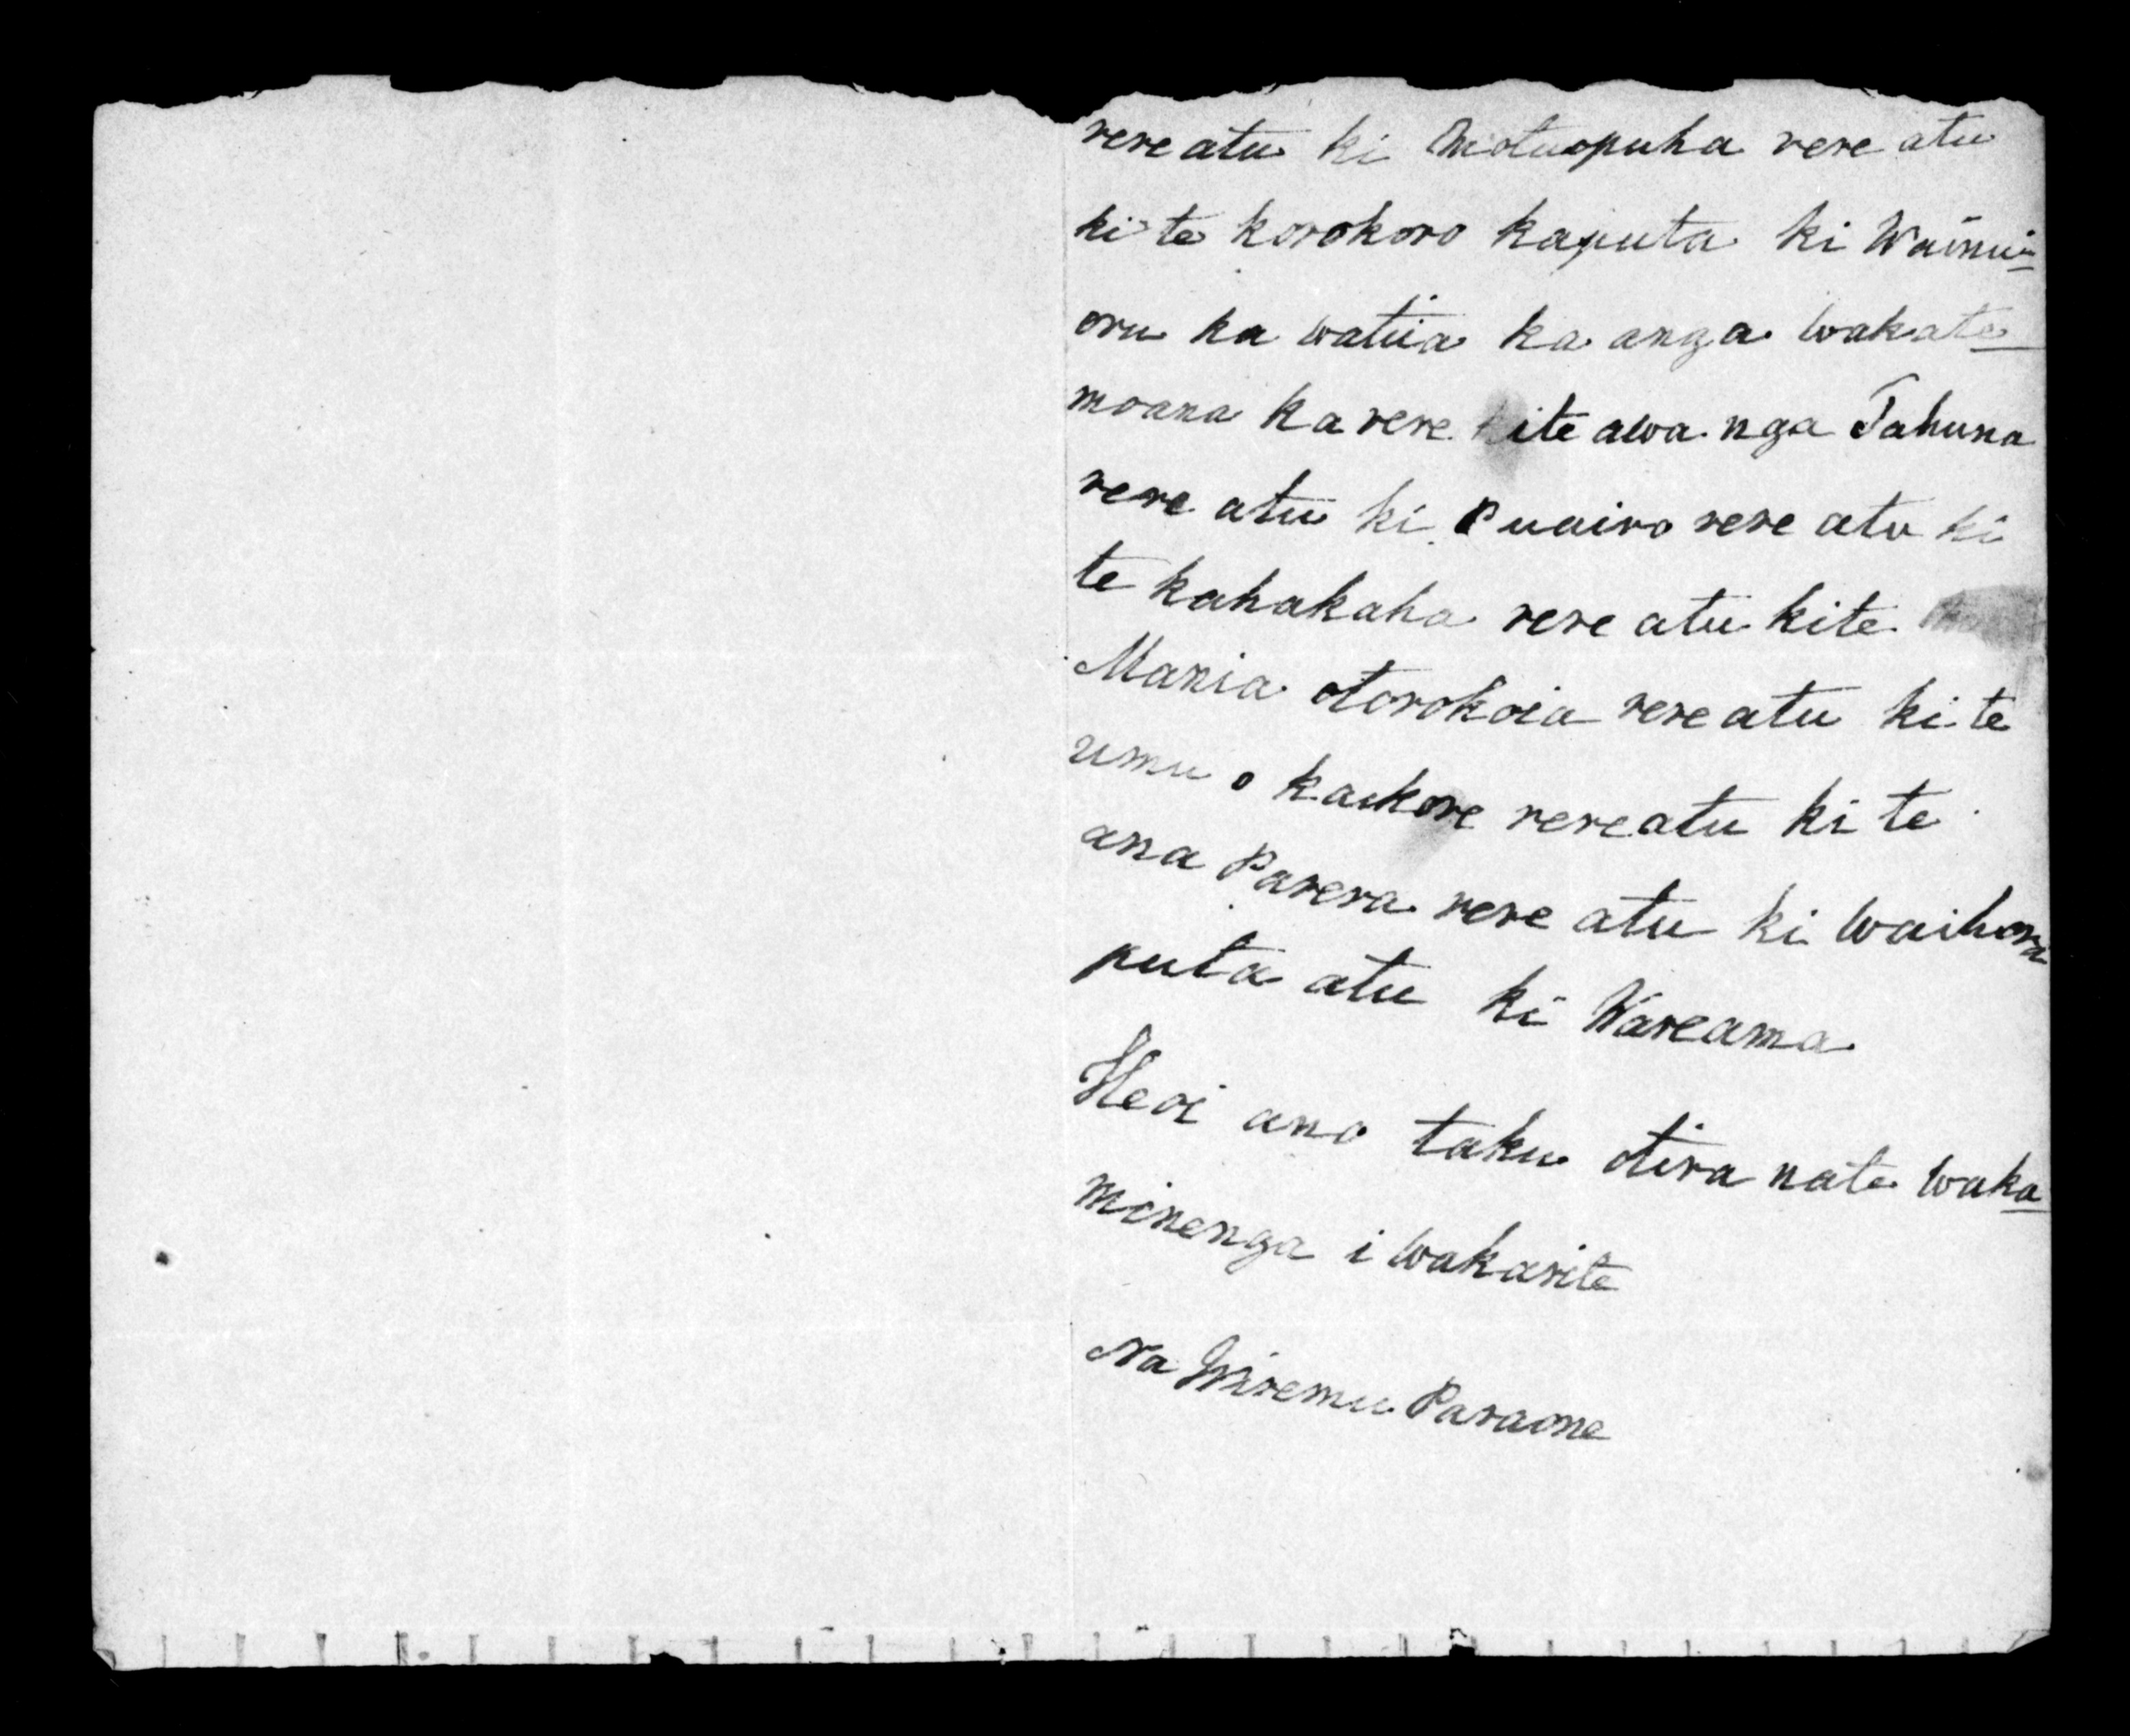 rere atu ki Motuopuha rere atu
ki te korokoro kaputa ki Wainui=
oru ka watiia ka anga wakate=
moana ka rere kite awa nga Tahuna
rere atu ki Puairo rere atu ki
te kahakaha rere atu kite
Mania otorokoia rere atu ki te
umu o kaikore rere atu ki te
ana Parera rere atu ki Waihora
puta atu ki Wareama
Heoi ano taku otira nate waka=
minenga i wakarite
Na Wiremu Paraone